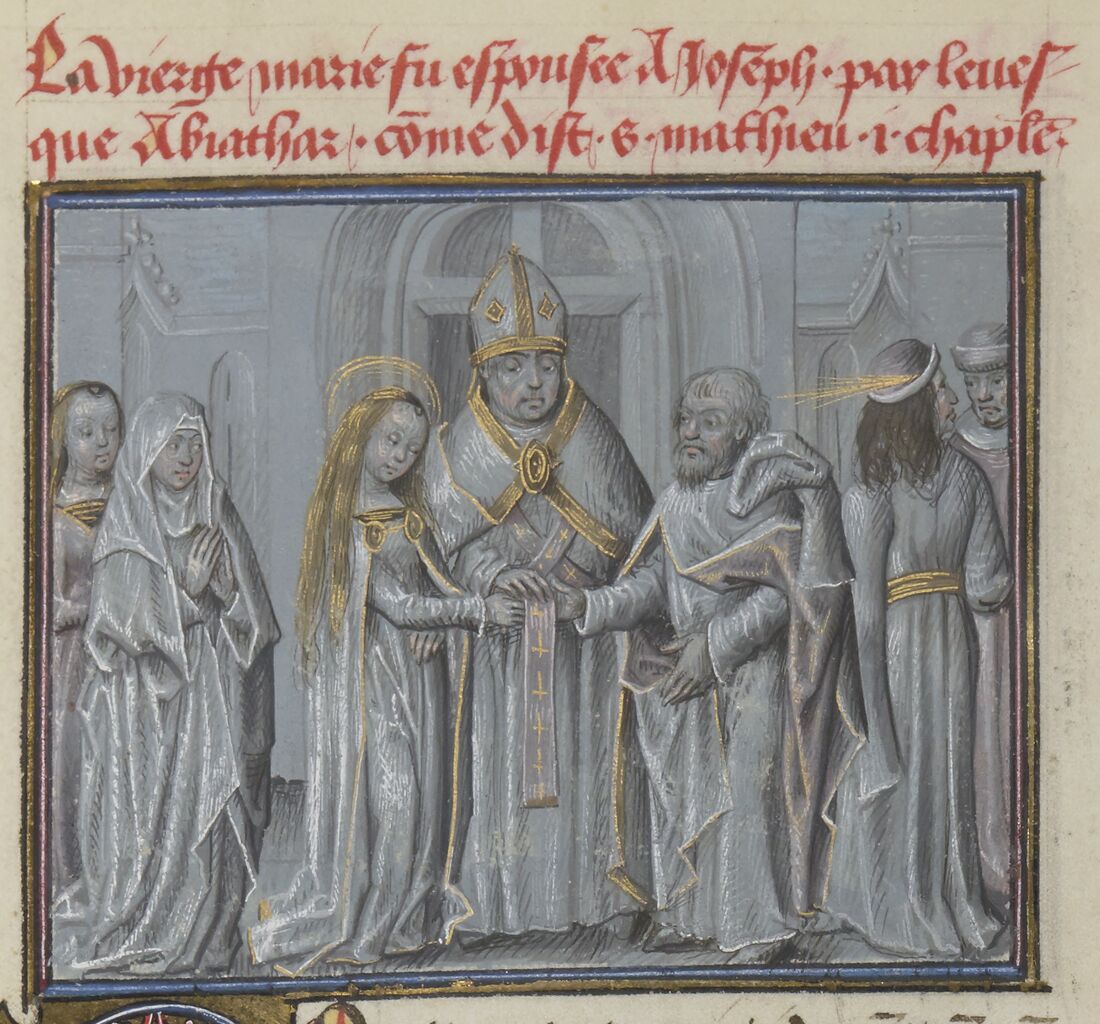 La vierge marie fu espousee A Joseph · par leues-
que Abiathar · cōme dist · s · mathieu · i · chaple.